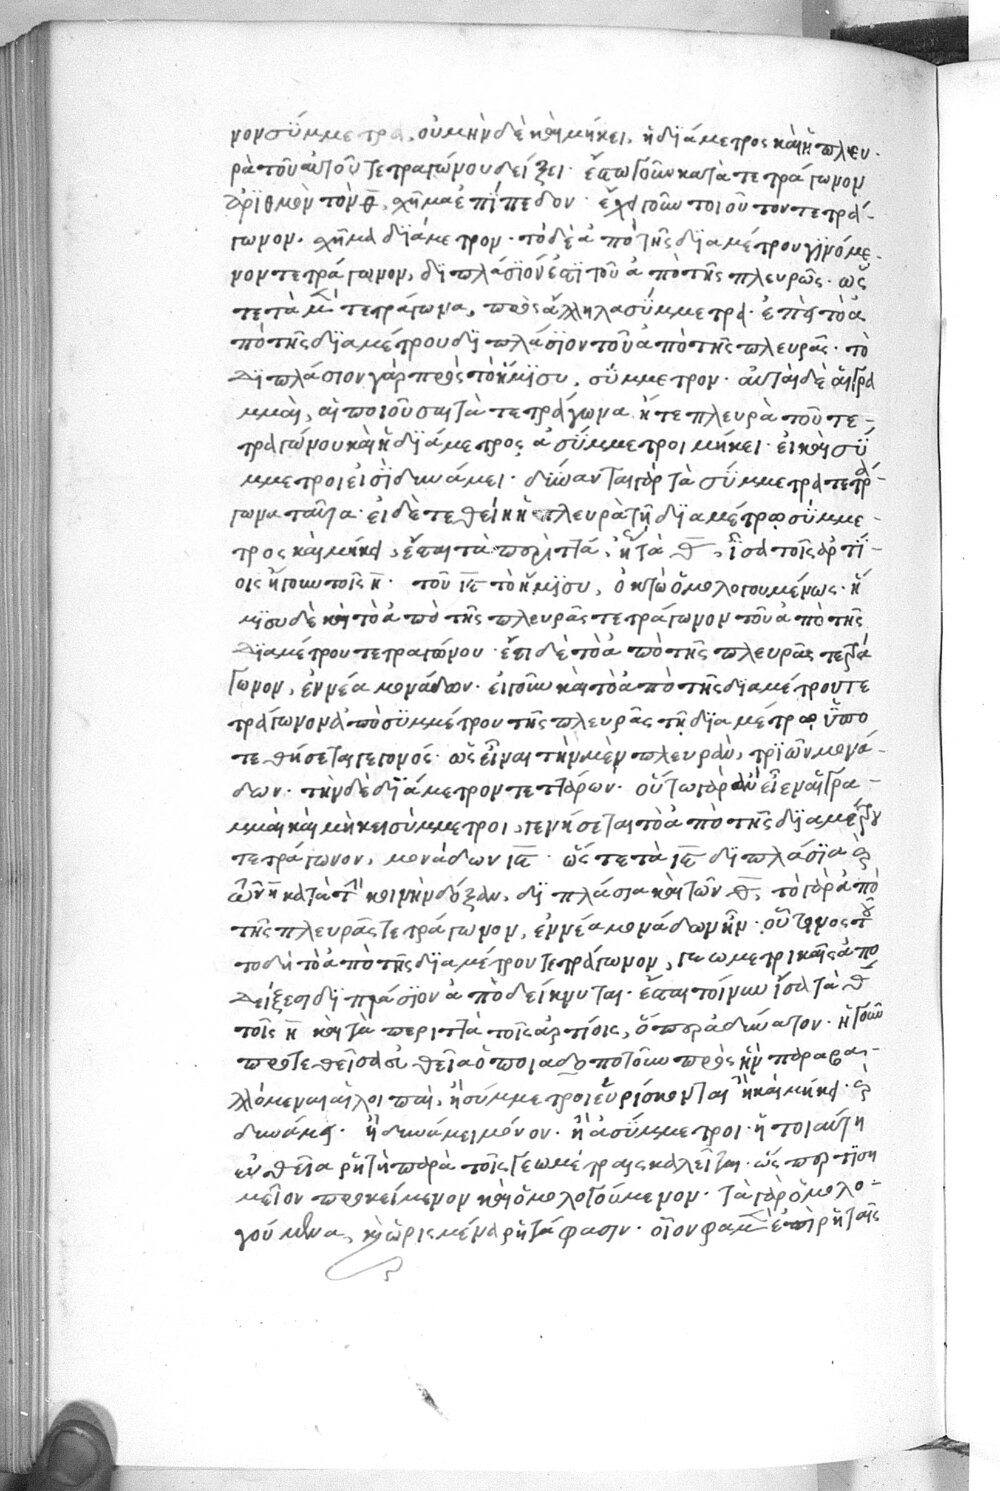 νον σύμμετρα, οὐ μὴν δὲ καὶ μήκει, ἡ διάμετρος καὶ ἡ πλευ-
ρὰ τοῦ αὐτοῦ τετραγώνου δείξει. ἔστω γοῦν κατὰ τετράγωνον
ἀριθμὸν τὸν θ, σχῆμα ἐπίπεδον. ἐχέτω γοῦν τοιοῦτον τετρά-
γωνον σχῆμα διάμετρον. τὸ δὲ ἀπὸ τῆς διαμέτρου γινόμε-
νον τετράγωνον, διπλάσιόν ἐστι τοῦ ἀπὸ τῆς πλευρᾶς. ὥσ
τε τὰ μὲν τετράγωνα, πρὸς ἄλληλα σύμμετρα. ἐπεὶ τὸ ἀ
πὸ τῆς διαμέτρου διπλάσιον τοῦ ἀπὸ τῆς πλευρᾶς. τὸ
διπλάσιον γὰρ πρὸς τὸ ἥμισυ, σύμμετρον. αὐταὶ δὲ αἱ γρα
μμαὶ, αἱ ποιοῦσαι τὰ τετράγωνα ἥ τε πλευρὰ τοῦ τε-
τραγώνου καὶ ἡ διάμετρος ἀσύμμετροι μήκει. εἰ καὶ σύ
μμετροι εἰσὶ δυνάμει. δύνανται γὰρ τὰ σύμμετρα τετρά-
γωνα ταῦτα. εἰ δὲ τεθείη ἡ πλευρὰ τῇ διαμέτρῳ σύμμε-
τρος καὶ μήκει, ἔσται τὰ περιττά, ἤτοι τὰ θ, ἴσα τοῖς ἀρτί-
οις ἤγουν τοῖς η. τοῦ ις τὸ ἥμισυ, ὀκτὼ ὁμολογουμένως. ἥ
μισυ δὲ καὶ τὸ ἀπὸ τῆς πλευρᾶς τετράγωνον τοῦ ἀπὸ τῆς
διαμέτρου τετραγώνου. ἔστι δὲ τὸ ἀπὸ τῆς πλευρᾶς τετρά
γωνον, ἐννέα μονάδων. εἰ γοῦν καὶ τὸ ἀπὸ τῆς διαμέτρου τε
τράγωνον ἀπὸ συμμέτρου τῆς πλευρᾶς τῇ διαμέτρῳ ὑπο
τεθήσεται γεγονός. ὡς εἶναι τὴν μὲν πλευρὰν, τριῶν μονά-
δων. τὴν δὲ διάμετρον τεττάρων. οὕτω γὰρ ἂν εἶεν αἱ γρα-
μμαὶ καὶ μήκει σύμμετροι, γενήσεται τὸ ἀπὸ τῆς διαμέτρου
τετράγωνον, μονάδων ις. ὥστε τὰ ις διπλάσια
ὧν η κατὰ τὴν κοινὴν δόξαν, διπλάσια καὶ τῶν θ, τὸ γὰρ ἀπὸ
τῆς πλευρᾶς τετράγωνον, ἐννέα μονάδων ἦν. οὕτινος τού
του δὴ τὸ ἀπὸ τῆς διαμέτρου τετράγωνον, γεωμετρικαῖς ἀπο
δείξεσι διπλάσιον ἀποδείκνυται. ἔσται τοίνυν ἴσα τὰ θ
τοῖς η καὶ τὰ περιττὰ τοῖς ἀρτίοις, ὅπερ ἀδύνατον. ἡ γοῦν
προτεθεῖσα εὐθεῖα ὁποιαδήποτοῦν πρὸς ἣν παραβα-
λλόμεναι αἱ λοιπαὶ, ἢ σύμμετροι εὑρίσκονται ἢ καὶ μήκει καὶ
δυνάμει. ἢ δυνάμει μόνον. ἢ ἀσύμμετροι. ἡ τοιαύτη
εὐθεῖα ῥητὴ παρὰ τοῖς γεωμέτραις καλεῖται. ὥσπερ τι ση
μεῖον προκείμενον καὶ ὁμολογούμενον. τὰ γὰρ ὁμολο-
γούμενα, καὶ ὡρισμένα ῥητά φασιν. οἷον φαμὲν ἐπὶ ῥηταῖς